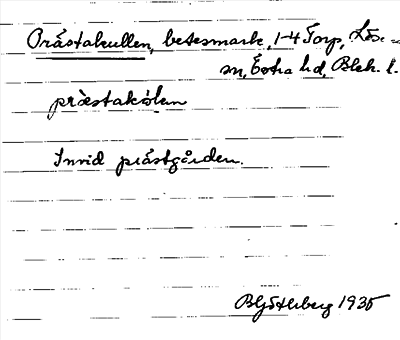 Prästakullen, betesmark, 1-4 Torp, Lös-
sn, Östra hd, Blek. l.
præstakolen
Invid prästgården.
1935